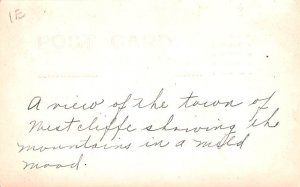 1E
POST CARD
A view of the town of
Westcliffe showing the
mountains in a mild
mood.